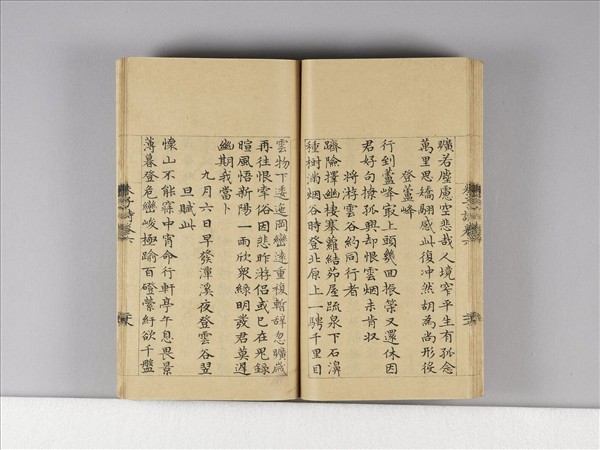 曠若塵慮空悲哉人境窄平生有孤念
萬里思矯翮感此復冲然胡為尚形役
登蘆峰
行到蘆峰最上頭幾回振策又還休因
君好句撩孤興却恨雲烟未肯收
將游雲谷約同行者
躋險擇幽棲搴蘿結茆屋疏泉下石瀨
種樹滿烟谷時登北原上一騁千里目
雲物下逶迤岡巒遠重複暫辭忽曠歲
再往恨牽俗因悲昨游侶或已在鬼錄
暄風悟新陽一雨欣衆綠明發君莫遲
幽期我當卜
九月六日早發潭溪夜登雲谷翌
旦賦此
懷山不能寐申宵命行軒亭午息畏景
薄暮登危巒峻極踰百磴縈紆欲千盤